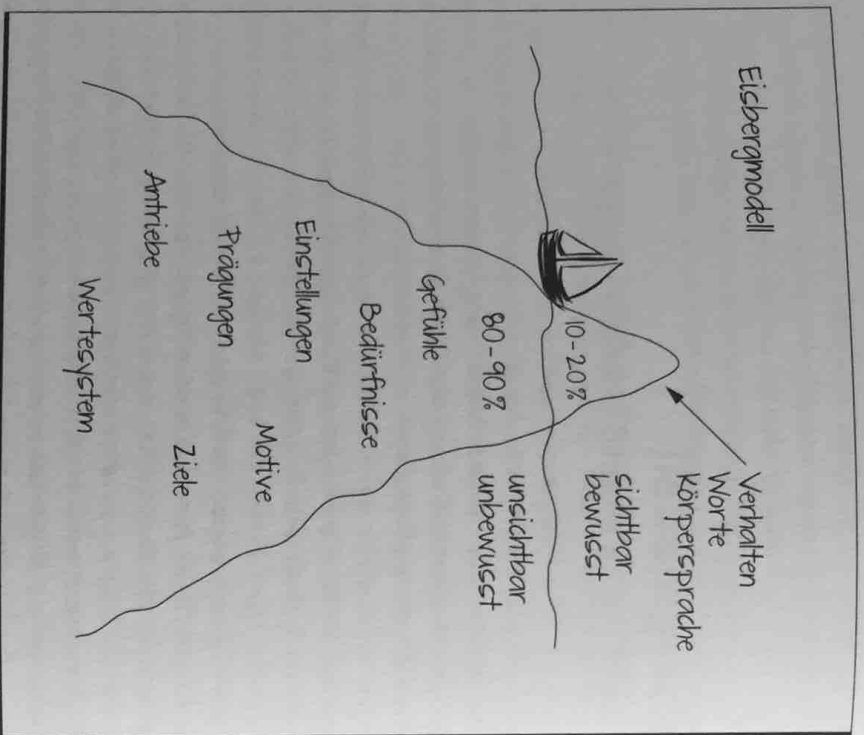 Eisbergmodell
Verhalten
Worte
Körpersprache
sichtbar
bewusst
10-20%
unsichtbar
unbewusst
80-90%
Gefühle
Bedürfnisse
Einstellungen
Motive
Prägungen
Ziele
Antriebe
Wertesystem